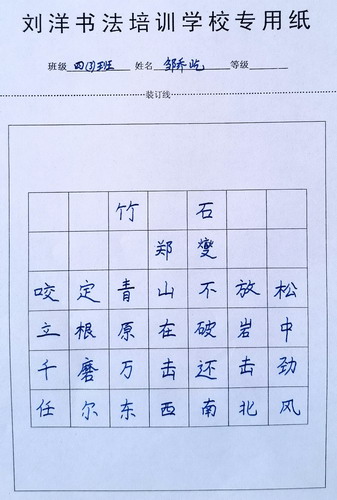 刘洋书法培训学校专用纸
班级 四(3)班 姓名 邹乔屹 等级
装订线
竹石
郑燮
咬定青山不放松
立根原在破岩中
千磨万击还击劲
任尔东西南北风